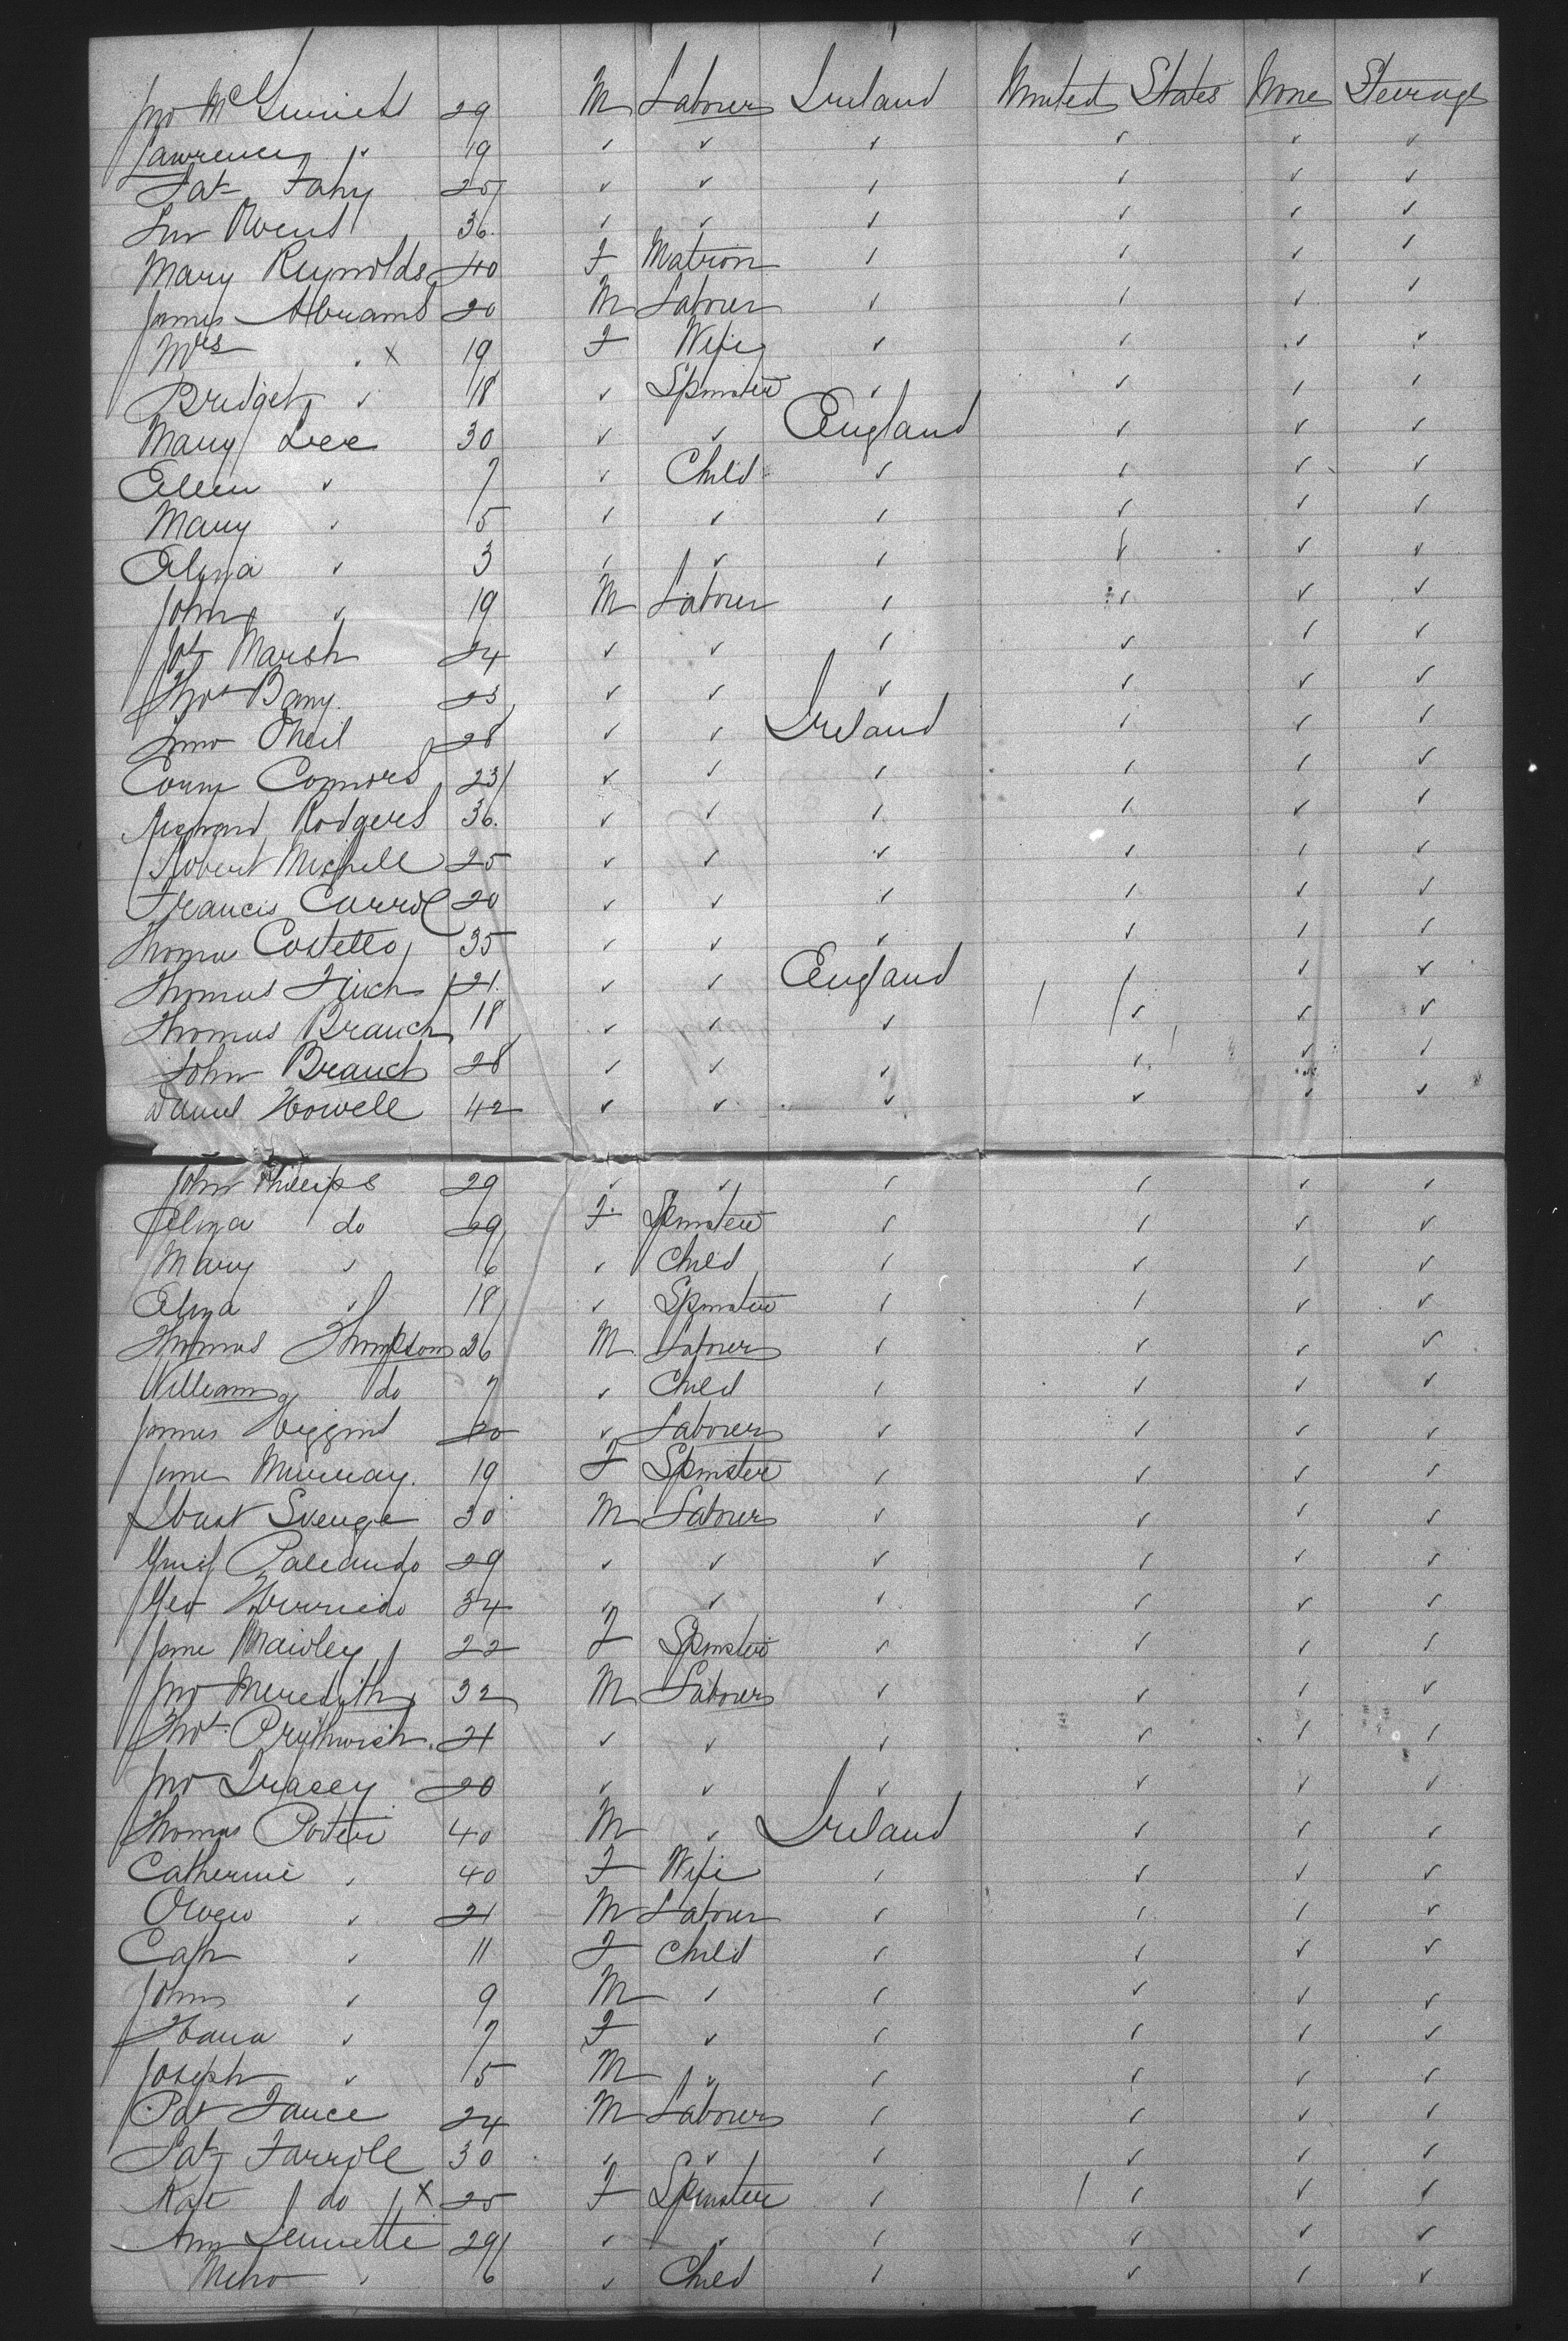 Jno McGuiness 29 M Labourer Ireland United States None Steerage
Lawrence ✓ 19 ✓ ✓ ✓ ✓ ✓ ✓
Pat Fahy 25 ✓ ✓ ✓ ✓ ✓ ✓
Jno 36 ✓ ✓ ✓ ✓ ✓ ✓
Mary Reynolds 40 F Matron ✓ ✓ ✓ ✓
James Abrams 20 M Labourer ✓ ✓ ✓ ✓
Mrs ✓ x 19 F Wife ✓ ✓ ✓ ✓
Bridget ✓ 18 ✓ Spinster ✓ ✓ ✓ ✓
Mary Lee 30 ✓ ✓ England ✓ ✓ ✓
Ellen ✓ 7 ✓ Child ✓ ✓ ✓ ✓
Mary ✓ 5 ✓ ✓ ✓ ✓ ✓ ✓
Eliza ✓ 3 ✓ ✓ ✓ ✓ ✓ ✓
John ✓ 19 M Labourer ✓ ✓ ✓ ✓
Marsh 24 ✓ ✓ ✓ ✓ ✓ ✓
Thos Barry 23 ✓ ✓ ✓ ✓ ✓ ✓
Jno ONeil 28 ✓ ✓ Ireland ✓ ✓ ✓
Connors 23 ✓ ✓ ✓ ✓ ✓ ✓
Richard Rodgers 36 ✓ ✓ ✓ ✓ ✓ ✓
Robert Michell 25 ✓ ✓ ✓ ✓ ✓ ✓
Francis Carrol 20 ✓ ✓ ✓ ✓ ✓ ✓
Thomas Costello 35 ✓ ✓ ✓ ✓ ✓ ✓
Thomas Finch 21 ✓ ✓ England ✓ ✓ ✓
Thomas Branch 18 ✓ ✓ ✓ ✓ ✓ ✓
John Branch 28 ✓ ✓ ✓ ✓ ✓ ✓
Daniel Howell 42 ✓ ✓ ✓ ✓ ✓ ✓
John Phillips 29 ✓ ✓ ✓ ✓ ✓ ✓
Eliza do 29 F Spinster ✓ ✓ ✓ ✓
Mary ✓ 6 ✓ Child ✓ ✓ ✓ ✓
Eliza ✓ 18 ✓ Spinster ✓ ✓ ✓ ✓
Thomas Thompson 26 M Labourer ✓ ✓ ✓ ✓
William do 7 ✓ Child ✓ ✓ ✓ ✓
James Higgins 20 ✓ Labourer ✓ ✓ ✓ ✓
Jane Murray 19 F Spinster ✓ ✓ ✓ ✓
30 M Labourer ✓ ✓ ✓ ✓
29 ✓ ✓ ✓ ✓ ✓ ✓
Geo 34 ✓ ✓ ✓ ✓ ✓ ✓
Jane Mawley 22 F Spinster ✓ ✓ ✓ ✓
Jno Meredith 32 M Labourer ✓ ✓ ✓ ✓
Thos 21 ✓ ✓ ✓ ✓ ✓ ✓
Jno Tracey 20 ✓ ✓ ✓ ✓ ✓ ✓
Thomas Porter 40 M ✓ Ireland ✓ ✓ ✓
Catherine ✓ 40 F Wife ✓ ✓ ✓ ✓
Owen ✓ 21 M Labourer ✓ ✓ ✓ ✓
Cath ✓ 11 F Child ✓ ✓ ✓ ✓
John ✓ 9 M ✓ ✓ ✓ ✓ ✓
Hana ✓ 7 F ✓ ✓ ✓ ✓ ✓
Joseph ✓ 5 M ✓ ✓ ✓ ✓ ✓
Pat 24 M Labourer ✓ ✓ ✓ ✓
Pat Farrell 30 ✓ ✓ ✓ ✓ ✓ ✓
Kate do x 25 F Spinster ✓ ✓ ✓ ✓
Ann 29 ✓ ✓ ✓ ✓ ✓ ✓
✓ 6 ✓ Child ✓ ✓ ✓ ✓